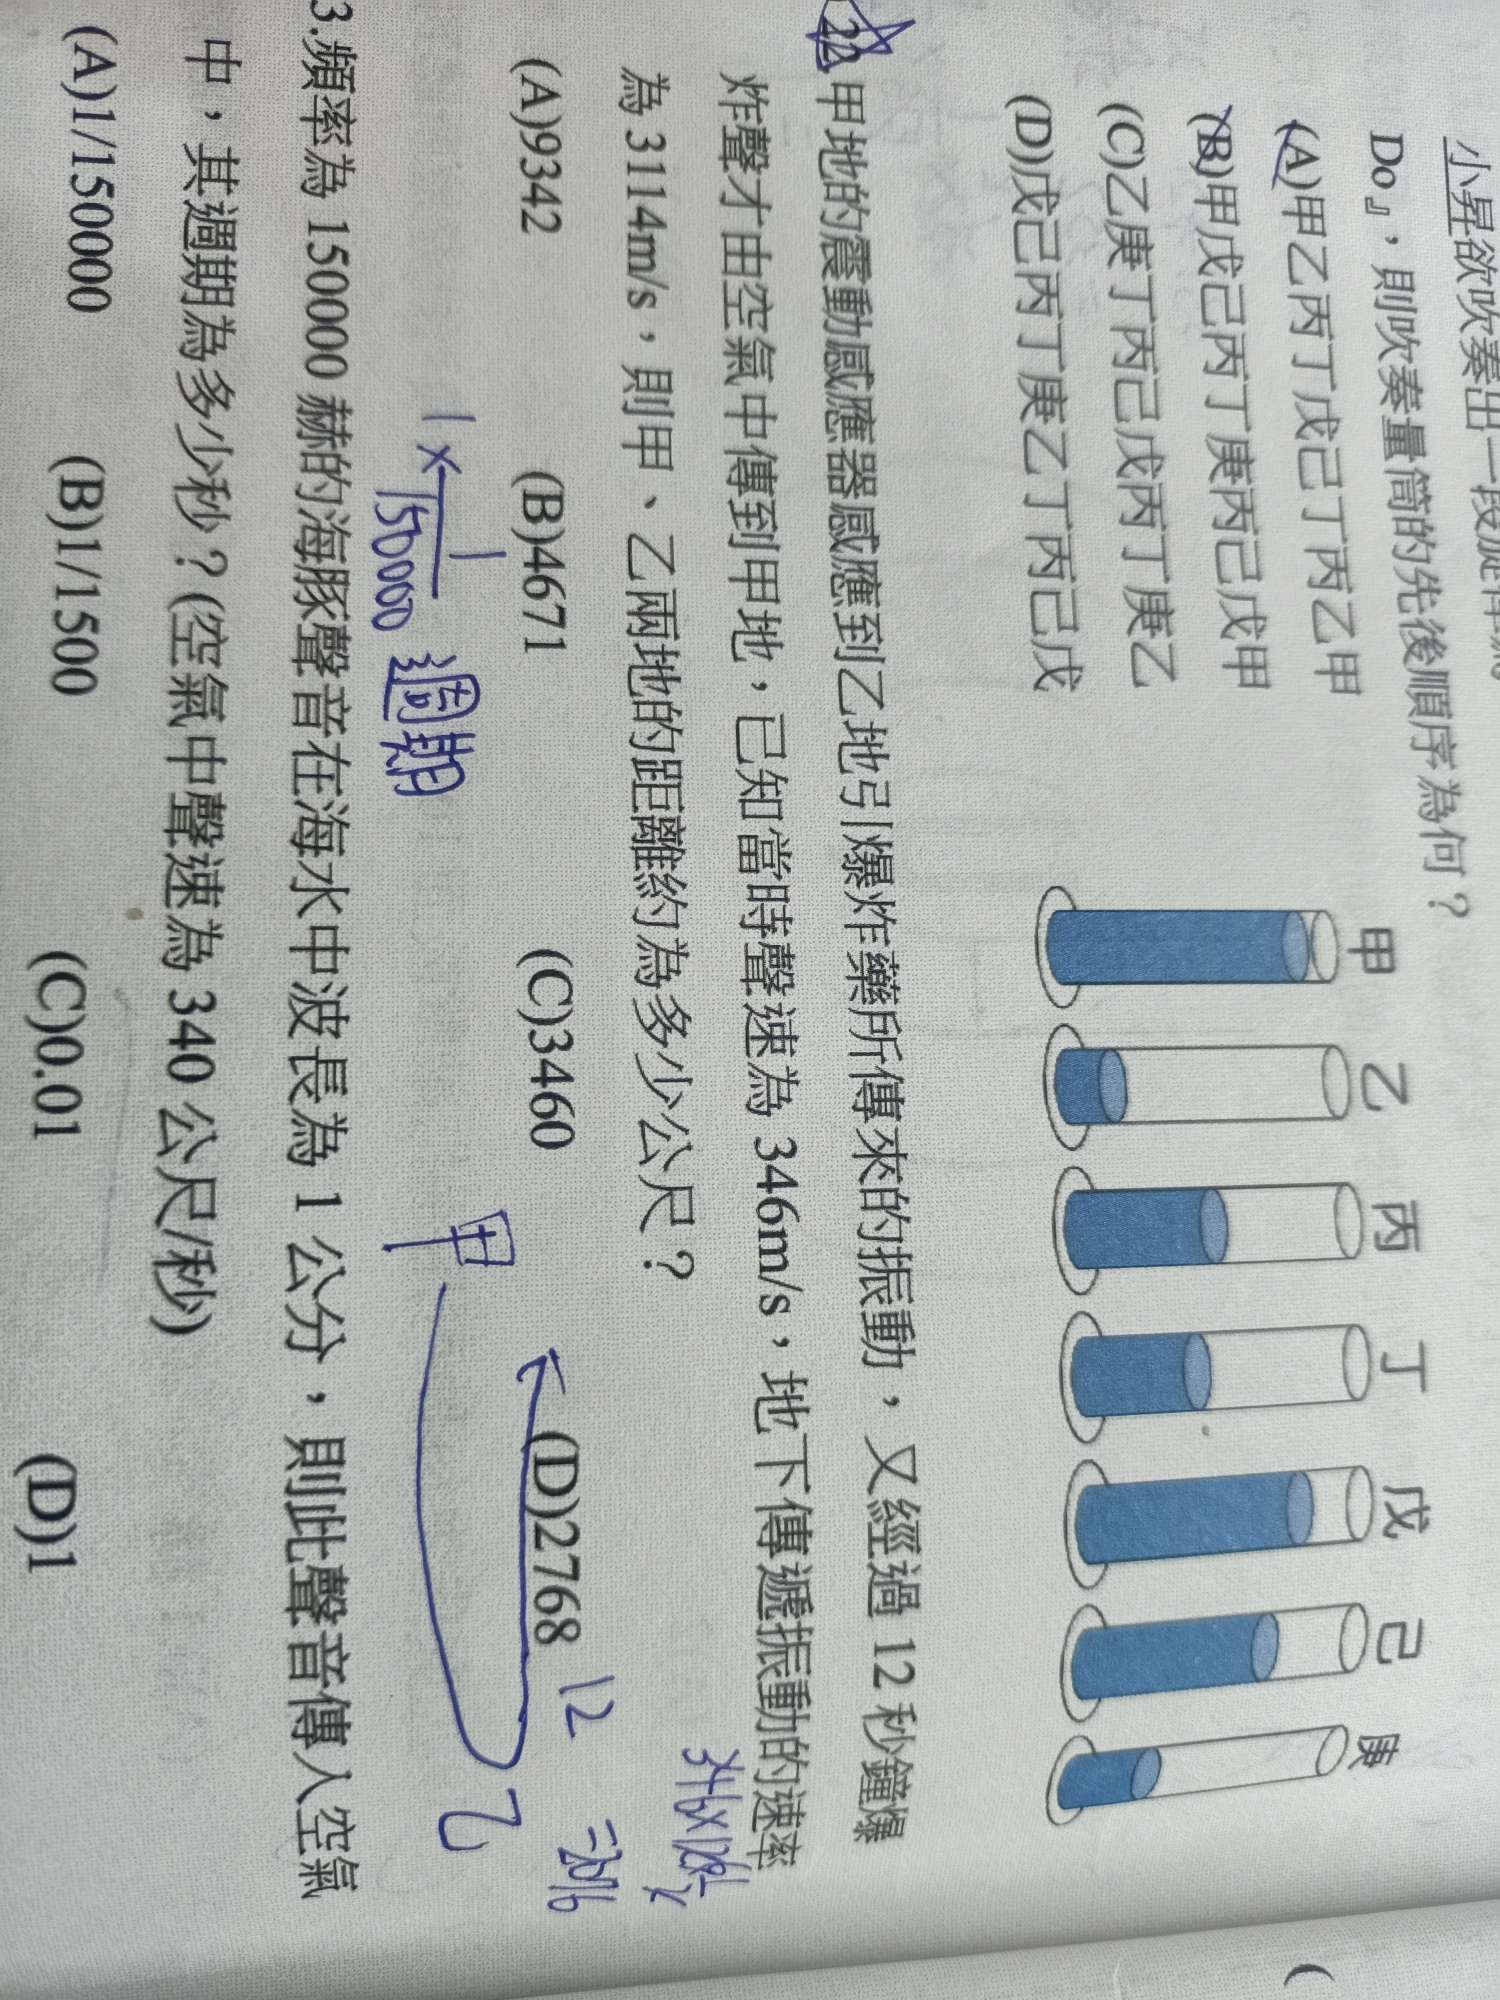 小昇欲吹奏出一段旋律
Do』，則吹奏量筒的先後順序為何？
(A)甲乙丙丁戊己丁丙乙甲
(B)甲戊己丙丁庚丙己戊甲
(C)乙庚丁丙己戊丙丁庚乙
(D)戊己丙丁庚乙丁丙己戊
甲 乙 丙 丁 戊 己 庚
22.甲地的震動感應器感應到乙地引爆炸藥所傳來的振動，又經過 12 秒鐘爆
炸聲才由空氣中傳到甲地，已知當時聲速為 346m/s，地下傳遞振動的速率
為 3114m/s，則甲、乙兩地的距離約為多少公尺？
346×12
(A)9342 (B)4671 (C)3460 (D)2768
12
甲
乙
1×1/150000 週期
3.頻率為 150000 赫的海豚聲音在海水中波長為 1 公分，則此聲音傳入空氣
中，其週期為多少秒？(空氣中聲速為 340 公尺/秒)
(A)1/150000 (B)1/1500 (C)0.01 (D)1